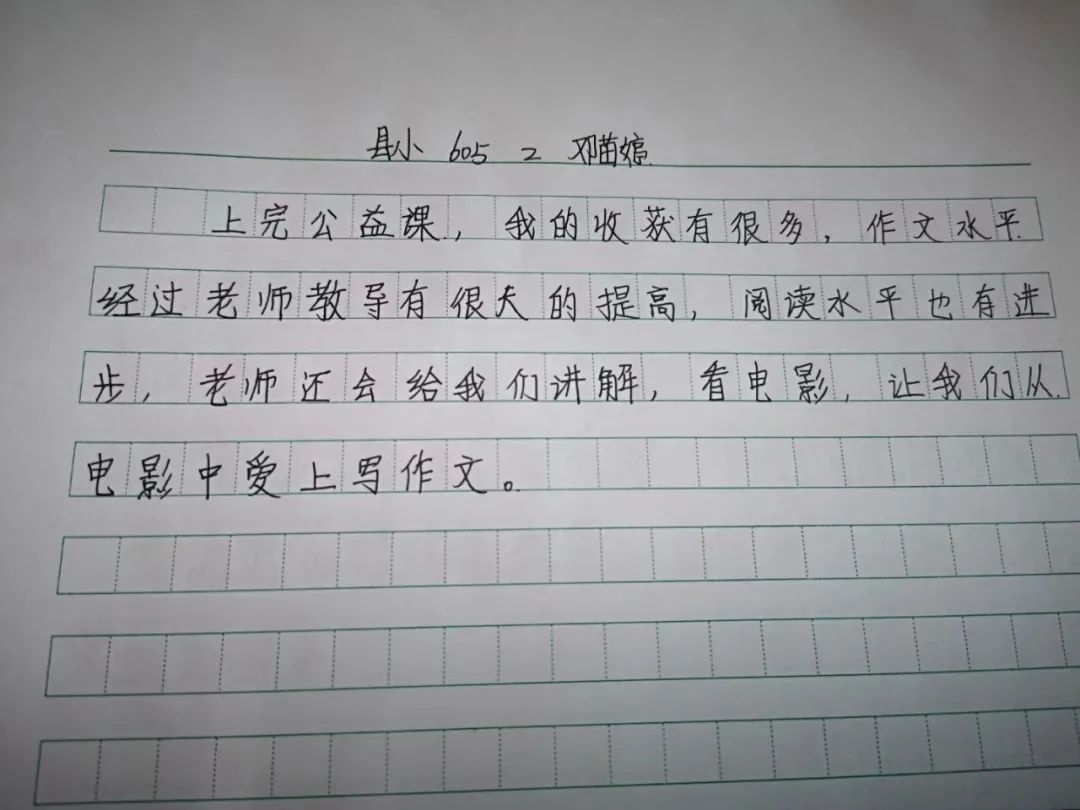 县小 605 2 邓苗婷
上完公益课，我的收获有很多，作文水平
经过老师教导有很大的提高，阅读水平也有进
步，老师还会给我们讲解，看电影，让我们从
电影中爱上写作文。